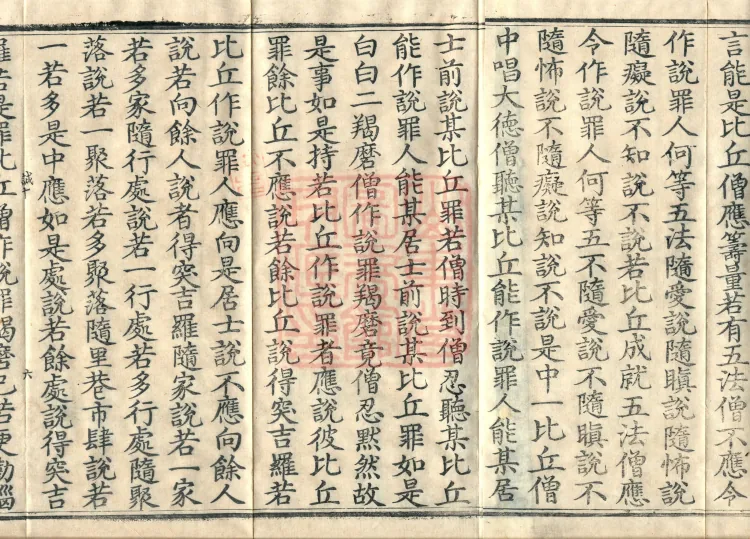 言能是比丘僧應籌量若有五法僧不應令
作說罪人何等五法隨愛說隨瞋說隨怖說
隨癡說不知說不說若比丘成就五法僧應
令作說罪人何等五不隨愛說不隨瞋說不
隨怖說不隨癡說知說不說是中一比丘僧
中唱大德僧聽某比丘能作說罪人能某居
士前說某比丘罪若僧時到僧忍聽某比丘
能作說罪人能某居士前說某比丘罪如是
白白二羯磨僧作說罪羯磨竟僧忍默然故
是事如是持若比丘作說罪者應說彼比丘
罪餘比丘不應說若餘比丘說得突吉羅若
比丘作說罪人應向是居士說不應向餘人
說若向餘人說者得突吉羅隨家說若一家
若多家隨行處說若一行處若多行處隨聚
落說若一聚落若多聚落隨里巷市肆說若
一若多是中應如是處說若餘處說得突吉
羅若是罪比丘僧作說罪羯磨已若更勤惱
六